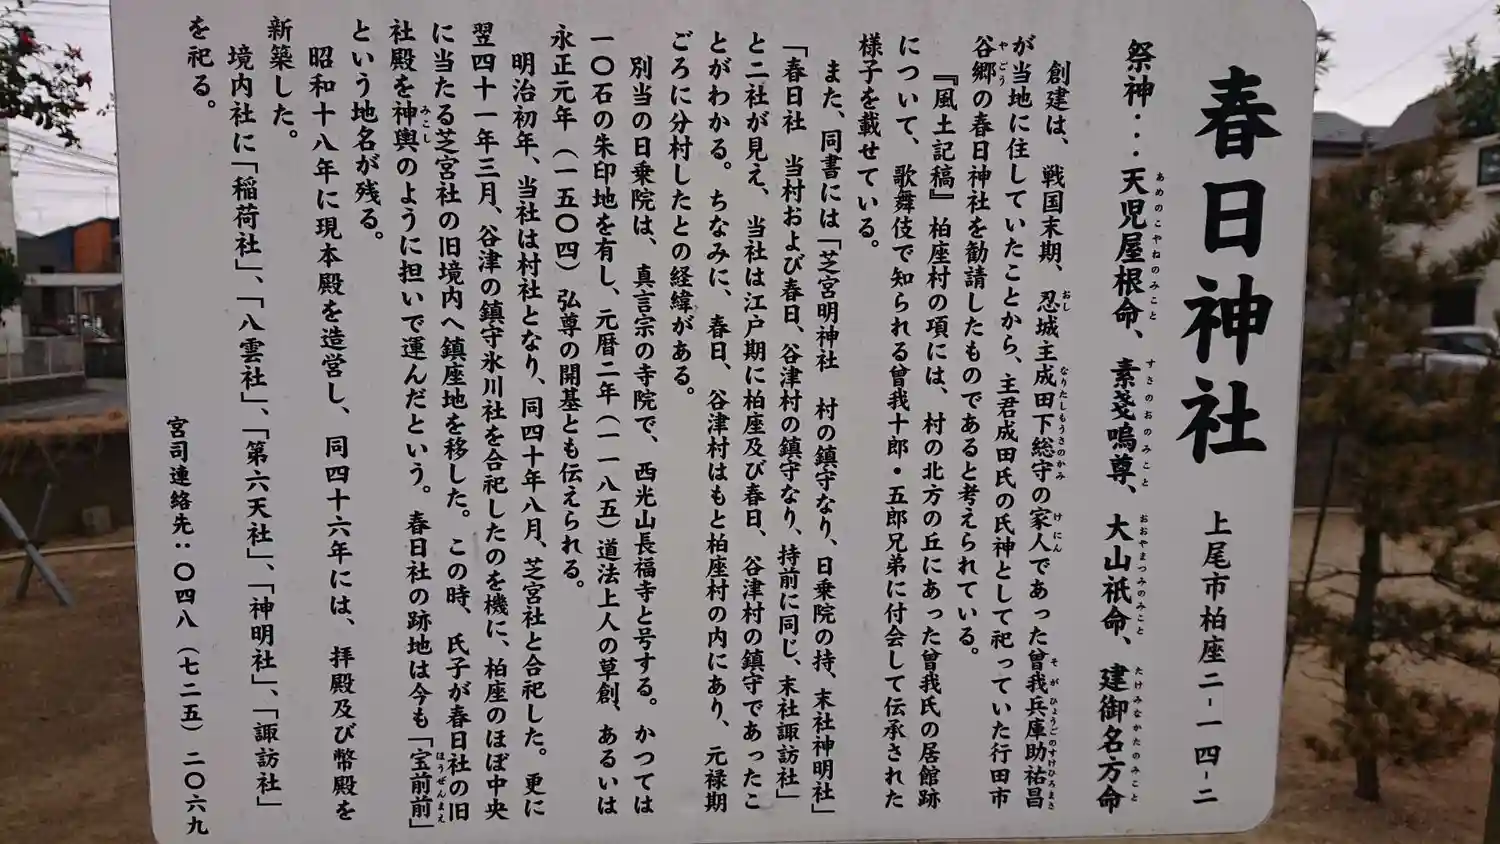 春日神社 上尾市柏座二-一四-二
祭神・・・天児屋根命、素戔嗚尊、大山祇命、建御名方命
あめのこやねのみこと すさのおのみこと おおやまつみのみこと たけみなかたのみこと
創建は、戦国末期、忍城主成田下総守の家人であった曽我兵庫助祐昌
おし なりたしもうさのかみ けにん そが ひょうごのすけひろまさ
が当地に住していたことから、主君成田氏の氏神として祀っていた行田市
谷郷の春日神社を勧請したものであると考えられている。
やごう
『風土記稿』柏座村の項には、村の北方の丘にあった曽我氏の居館跡
について、歌舞伎で知られる曽我十郎・五郎兄弟に付会して伝承された
様子を載せている。
また、同書には「芝宮明神社 村の鎮守なり、日乗院の持、末社神明社」
「春日社 当村および春日、谷津村の鎮守なり、持前に同じ、末社諏訪社」
と二社が見え、当社は江戸期に柏座及び春日、谷津村の鎮守であったこ
とがわかる。ちなみに、春日、谷津村はもと柏座村の内にあり、元禄期
ごろに分村したとの経緯がある。
別当の日乗院は、真言宗の寺院で、西光山長福寺と号する。かつては
一〇石の朱印地を有し、元暦二年（一一八五）道法上人の草創、あるいは
永正元年（一五〇四）弘尊の開基とも伝えられる。
明治初年、当社は村社となり、同四十年八月、芝宮社と合祀した。更に
翌四十一年三月、谷津の鎮守氷川社を合祀したのを機に、柏座のほぼ中央
に当たる芝宮社の旧境内へ鎮座地を移した。この時、氏子が春日社の旧
社殿を神輿のように担いで運んだという。春日社の跡地は今も「宝前前」
みこし ほうぜんまえ
という地名が残る。
昭和十八年に現本殿を造営し、同四十六年には、拝殿及び幣殿を
新築した。
境内社に「稲荷社」、「八雲社」、「第六天社」、「神明社」、「諏訪社」
を祀る。
宮司連絡先：〇四八（七二五）二〇六九